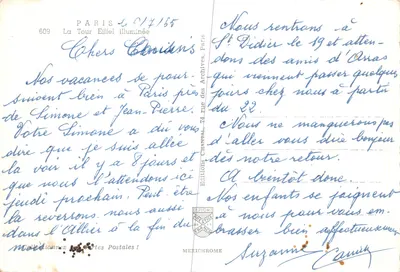 PARIS le 5/7/65
609 La Tour Eiffel illuminée
Chers Cousins
Nos vacances se pour-
suivent bien à Paris près
de Simone et Jean-Pierre.
Votre Simone a dû vous
dire que je suis allée
la voir il y a 8 jours et
que nous l'attendons ici
jeudi prochain. Peut être
la reverrons-nous aussi
dans l'Allier à la fin du
mois
Postales !
Nous rentrons à
St Didier le 19 et atten-
dons des amis d'Arras
qui viennent passer quelques
jours chez nous à partir
du 22.
Nous ne manquerons pas
d'aller vous dire bonjour
dès notre retour.
A bientôt donc.
Nos enfants se joignent
à nous pour vous em-
brasser bien affectueusement
Suzanne